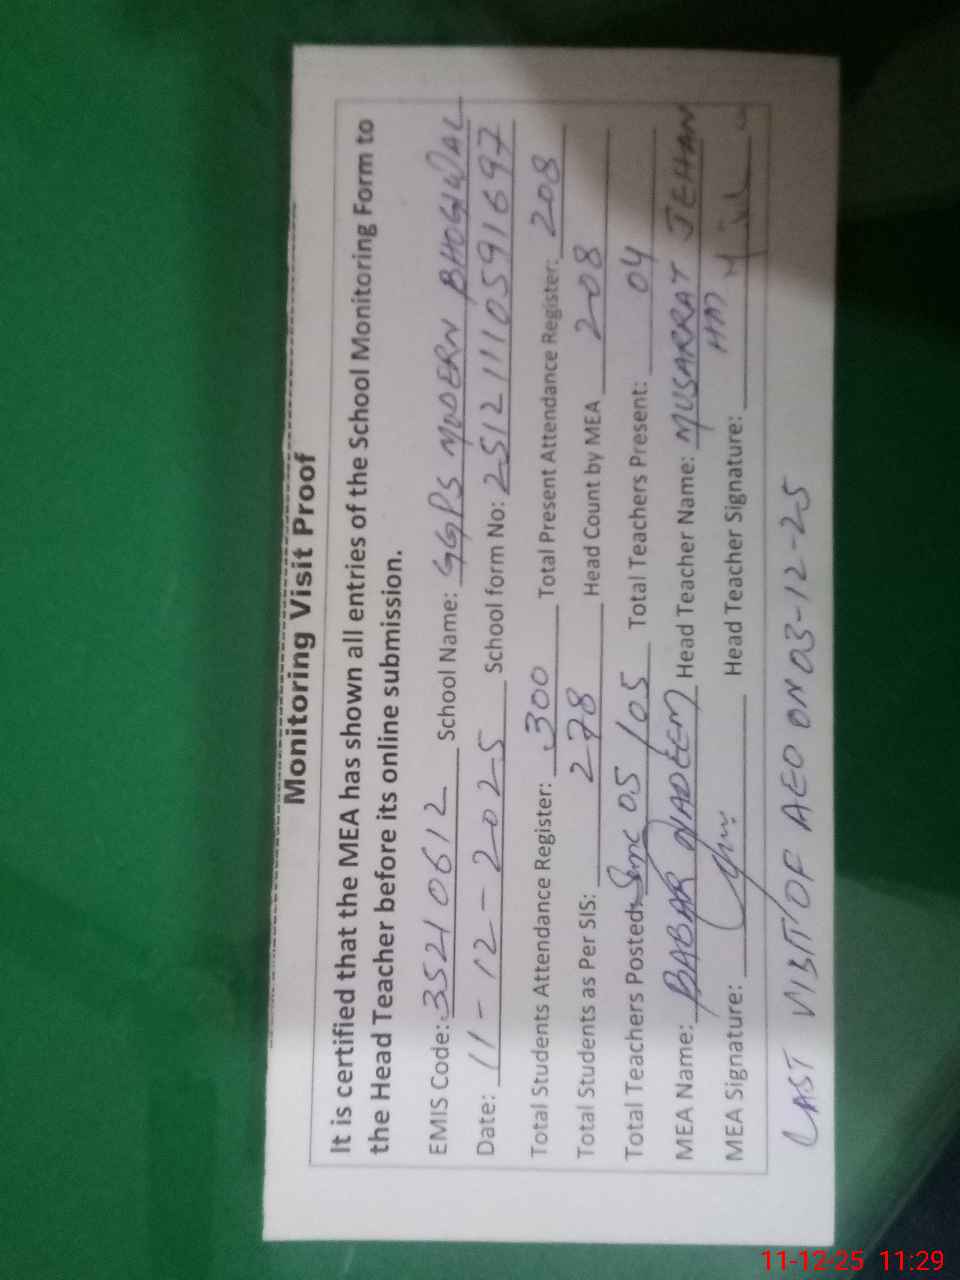 Monitoring Visit Proof
It is certified that the MEA has shown all entries of the School Monitoring Form to
the Head Teacher before its online submission.
EMIS Code: 35210612 School Name: GGPS MODERN BHOGIWAL
Date: 11-12-2025 School form No: 2512111059 1697
Total Students Attendance Register: 300 Total Present Attendance Register: 208
Total Students as Per SIS: 278 Head Count by MEA 208
Total Teachers Posted: Sanc 05 / 05 Total Teachers Present: 04
MEA Name: BABAR NADEEM Head Teacher Name: MUSARRAT JEHAN
MEA Signature: Head Teacher Signature:
LAST VISIT OF AEO ON 03-12-25
11-12-25 11:29